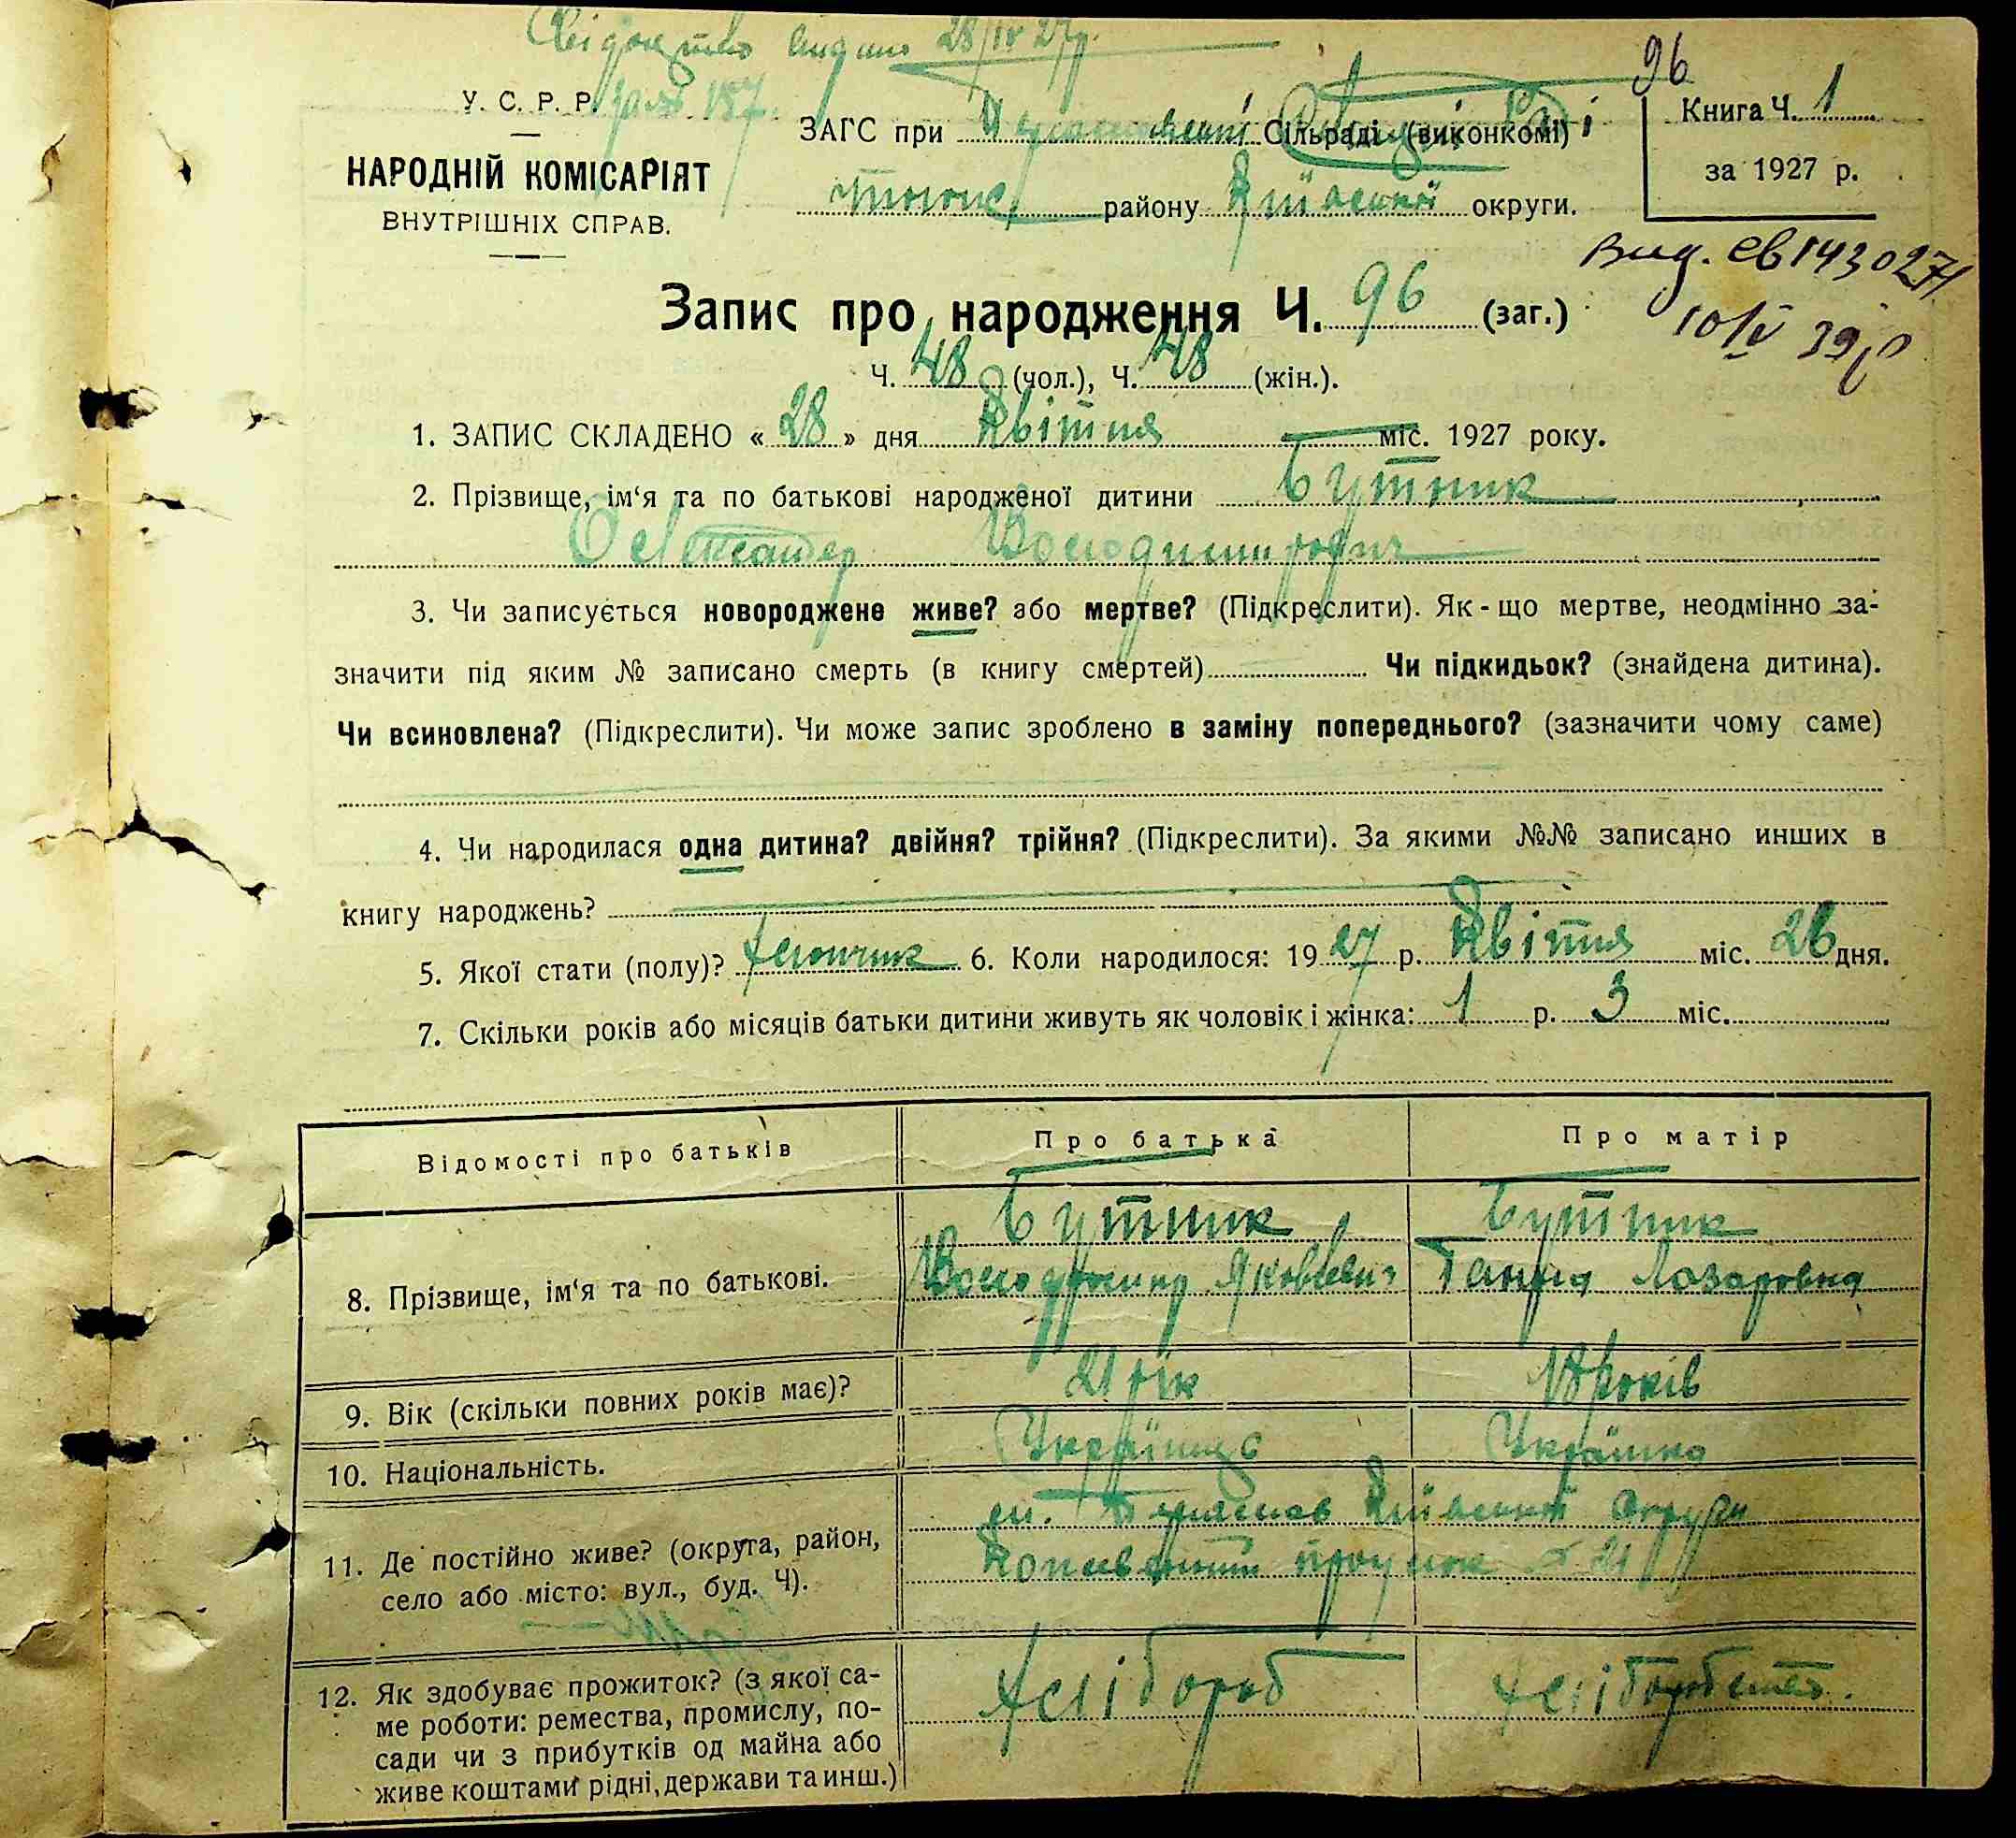 Свідоцтво видано 28/IV 27р.
У. С. Р. Р.
157
96
Книга Ч. 1
за 1927 р.
ЗАГС при Сільраді (виконкомі)
НАРОДНІЙ КОМІСАРІЯТ
ВНУТРІШНІХ СПРАВ.
району Київської округи.
Вид. ев 1430271
10/IV 39р
Запис про народження Ч. 96 (заг.)
Ч. 48 (чол.), Ч. 48 (жін.).
1. ЗАПИС СКЛАДЕНО « 28 » дня Квітня міс. 1927 року.
2. Прізвище, ім‘я та по батькові народженої дитини Бутник
Олександер Володимирович
3. Чи записується новороджене живе? або мертве? (Підкреслити). Як-що мертве, неодмінно за-
значити під яким № записано смерть (в книгу смертей) Чи підкидьок? (знайдена дитина).
Чи всиновлена? (Підкреслити). Чи може запис зроблено в заміну попереднього? (зазначити чому саме)
4. Чи народилася одна дитина? двійня? трійня? (Підкреслити). За якими №№ записано инших в
книгу народжень?
5. Якої стати (полу)? Хлопчик 6. Коли народилося: 1927 р. Квітня міс. 26 дня.
7. Скільки років або місяців батьки дитини живуть як чоловік і жінка: 1 р. 3 міс.
Відомості про батьків
Про батька
Про матір
8. Прізвище, ім‘я та по батькові.
Бутник
Володимир Яковлевич
Бутник
Ганна Лазаровна
9. Вік (скільки повних років має)?
21 рік
18 років
10. Національність.
Українец
Українка
11. Де постійно живе? (округа, район,
село або місто: вул., буд. Ч).
Київської Округи
№ 21
12. Як здобуває прожиток? (з якої са-
ме роботи: ремества, промислу, по-
сади чи з прибутків од майна або
живе коштами рідні, держави та инш.)
Хлібороб
Хліборобство.